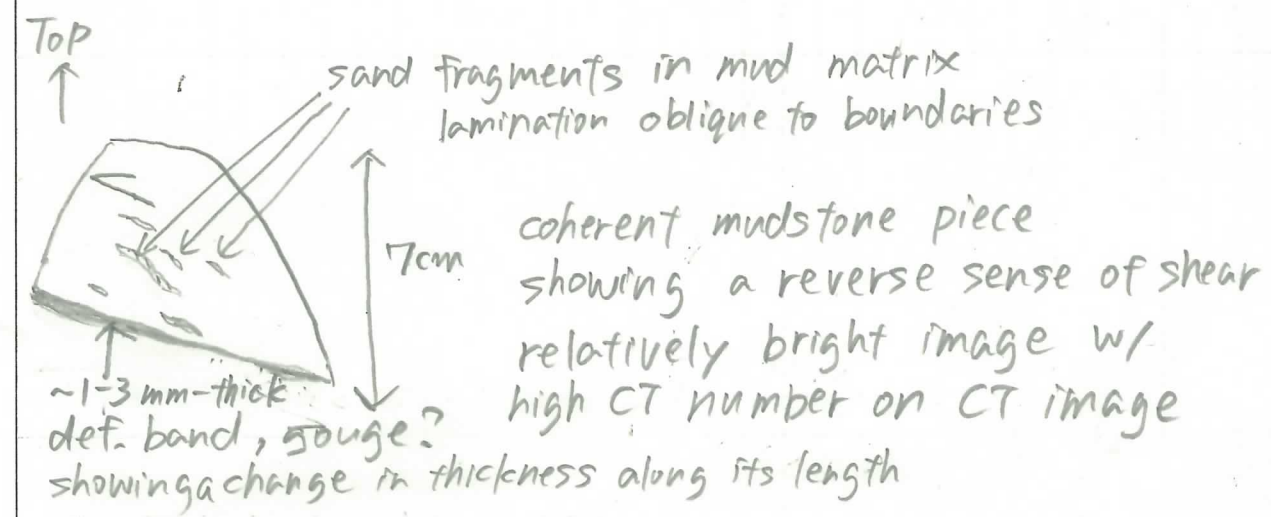 Top
sand fragments in mud matrix
lamination oblique to boundaries
7cm
coherent mudstone piece
showing a reverse sense of shear
relatively bright image w/
high CT number on CT image
~1-3 mm-thick
def. band, gouge?
showing a change in thickness along its length